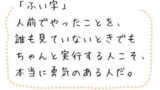 「ふい字」
人前でやったことを、
誰も見ていないときでも
ちゃんと実行する人こそ、
本当に勇気のある人だ。